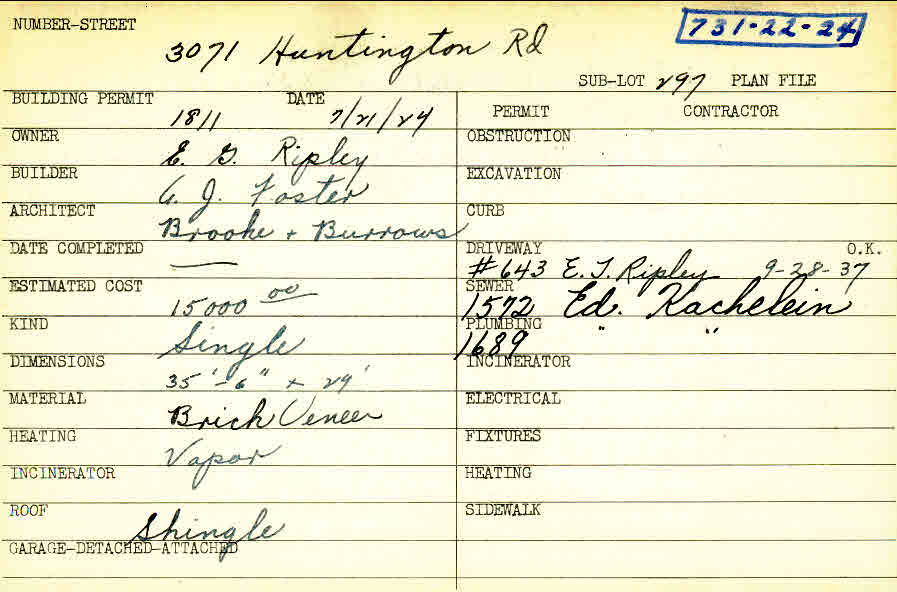 NUMBER-STREET
3071 Huntington Rd
731-22-24
SUB-LOT 297 PLAN FILE
BUILDING PERMIT 1811 DATE 7/21/24
OWNER E. G. Ripley
BUILDER A. J. Foster
ARCHITECT Brooke + Burrows
DATE COMPLETED —
ESTIMATED COST 15000 00
KIND Single
DIMENSIONS 35'-6" x 29'
MATERIAL Brick Veneer
HEATING Vapor
INCINERATOR
ROOF Shingle
GARAGE-DETACHED-ATTACHED
PERMIT CONTRACTOR
OBSTRUCTION
EXCAVATION
CURB
DRIVEWAY O.K.
#643 E. T. Ripley 9-28-37
SEWER
1572 Ed. Kachelein
PLUMBING
1689 " "
INCINERATOR
ELECTRICAL
FIXTURES
HEATING
SIDEWALK